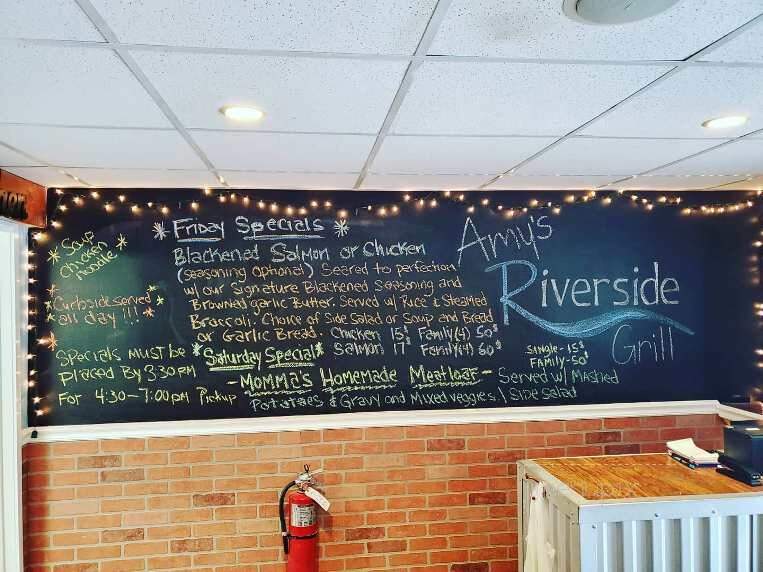 * Soup *
chicken
noodle
* Curbside served *
* all day !!! *
Specials must be
placed By 3:30 pm
For 4:30-7:00pm Pickup
* Friday Specials *
Blackened Salmon or Chicken
(seasoning optional) Seered to perfection
w/ our Signature Blackened Seasoning and
Browned garlic Butter. Served w/ Rice & Steamed
Broccoli. Choice of Side Salad or Soup and Bread
or Garlic Bread. Chicken 15$ Family(4) 50$
Salmon 17$ Family(4) 60$
*Saturday Special*
- Momma's Homemade Meatloaf - Served w/ Mashed
Potatoes & Gravy and Mixed veggies, Side Salad
Single - 15$
Family - 50$
Amy's
Riverside
Grill